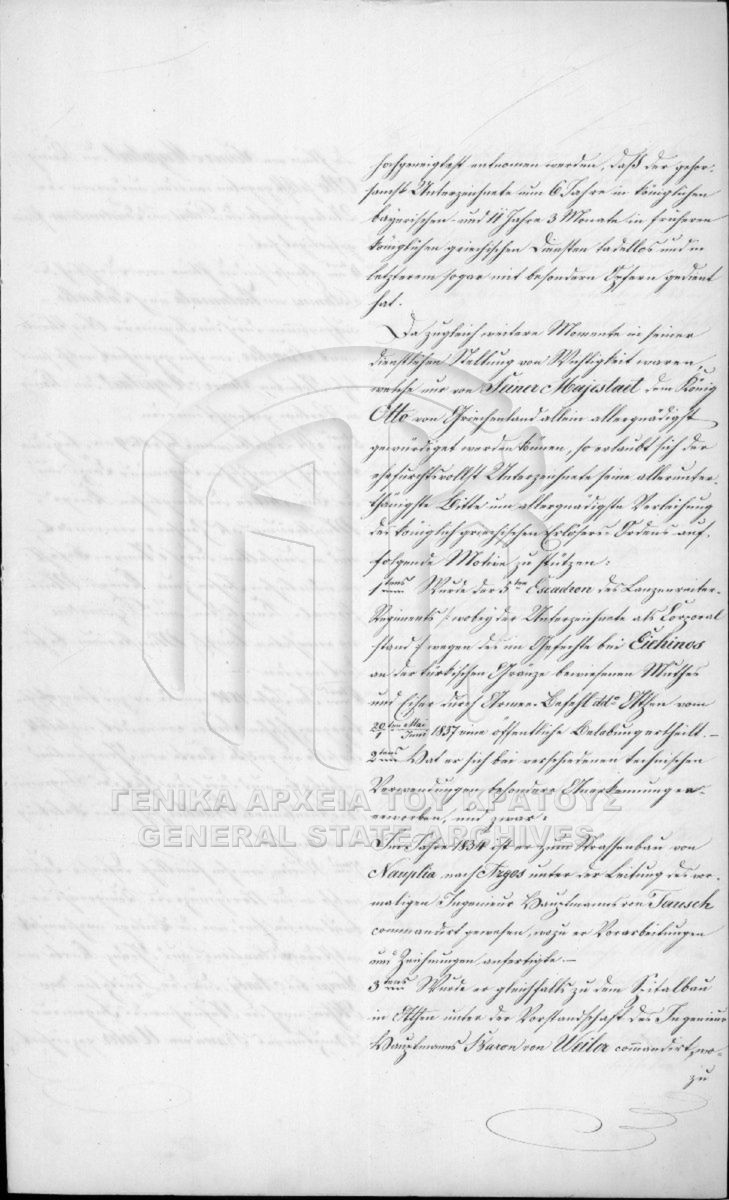 hochgeneigtest entnomen werden, daß der gehor-
samst Unterzeichnete nun 6 Jahre in königlichen
bayerischen- und 11 Jahre 3 Monate in früheren
königlichen griechischen Diensten tadellos und in
letzterem sogar mit besondern Opfern gedient
hat.
Da zugleich weitere Momente in seiner
dienstlichen Stellung von Wichtigkeit waren,
welche nur von Seiner Majestaet dem König
Otto von Griechenland allein allergnädigst
gewürdiget werden könen, so erlaubt sich der
ehrfurchtsvollst Unterzeichnete seine allerunter-
thänigste Bitte um allergnädigste Verleihung
des königlich griechischen Erlösers Ordens auf
folgende Motive zu stützen:
1tens Wurde der 5ten Escadron des Lanzenreiter-
Regiments /: wobey der Unterzeichnete als Corporal
stand :/ wegen des im Gefechte bei Eichinos
an der türkischen Gränze bewiesenen Muthes
und Eifer durch Armee-Befehl ddo Athen vom
20ten Mai / 1 Juni 1837 eine öffentliche Belobung ertheilt. —
2tens Hat er sich bei verschiedenen technischen
Verwendungen besondere Anerkennungen
erworben, und zwar:
Im Jahre 1834 ist er zum Strassenbau von
Nauplia nach Argos unter der Leitung des vor-
maligen Ingenieur Hauptmanns von Tausch
commandirt gewesen, wozu er Vorarbeitungen
und Zeichnungen anfertigte. —
3tens Wurde er gleichfalls zu dem Spitalbau
in Athen unter der Vorstandschaft des Ingenieur
Hauptmanns Baron von Weiler comandirt, wo-
zu
ΓΕΝΙΚΑ ΑΡΧΕΙΑ ΤΟΥ ΚΡΑΤΟΥΣ
GENERAL STATE ARCHIVES